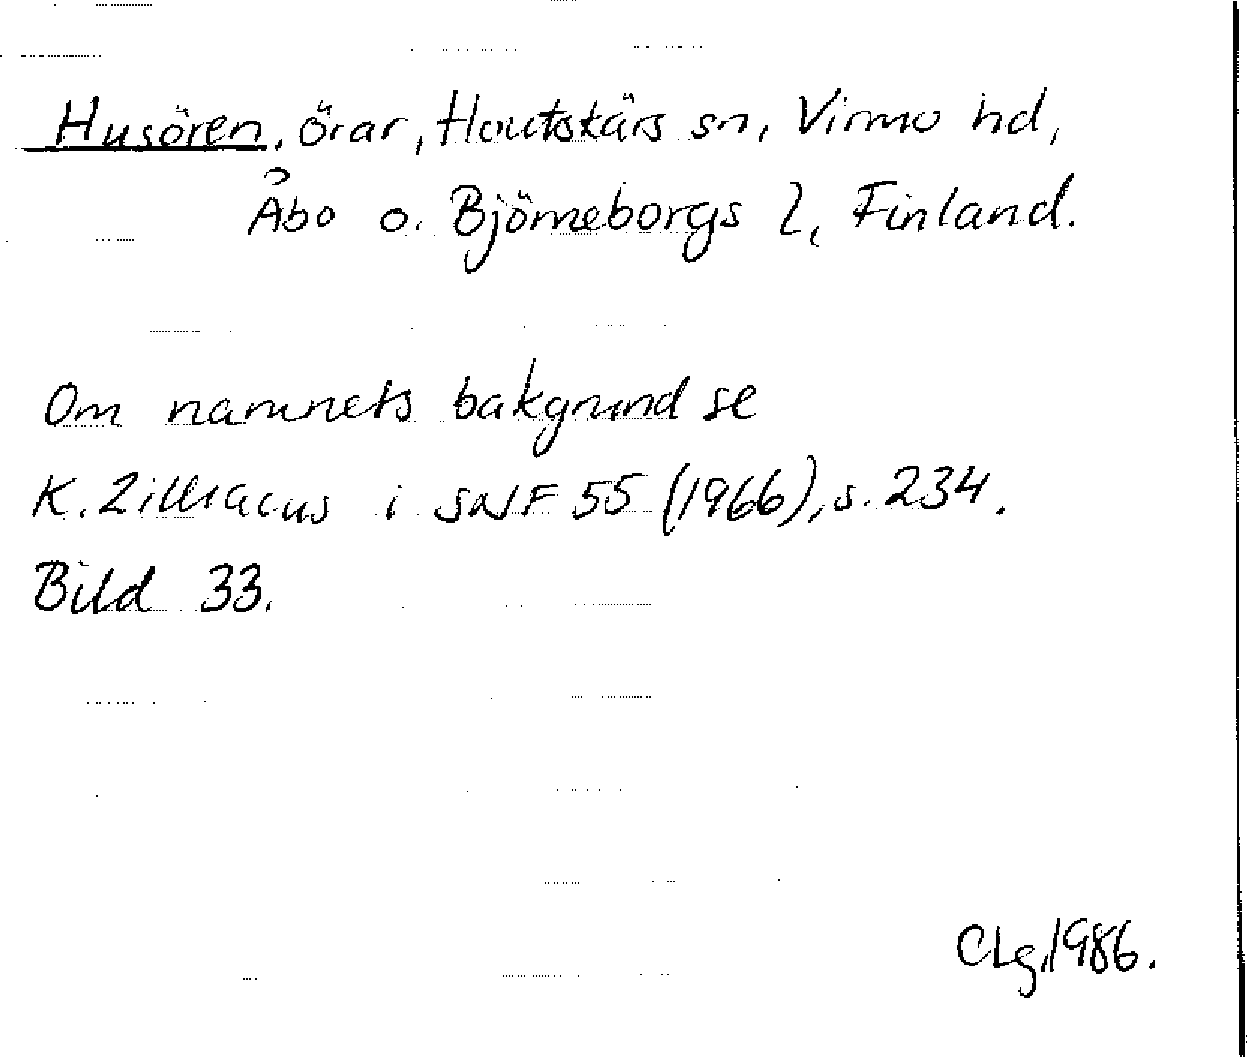 Husören, örar, Houtskärs sn, Virmo hd,
Åbo o. Björneborgs l, Finland.
Om namnets bakgrund se
K. Zilliacus i SNF 55 (1966), s. 234.
Bild 33.
CLg, 1986.